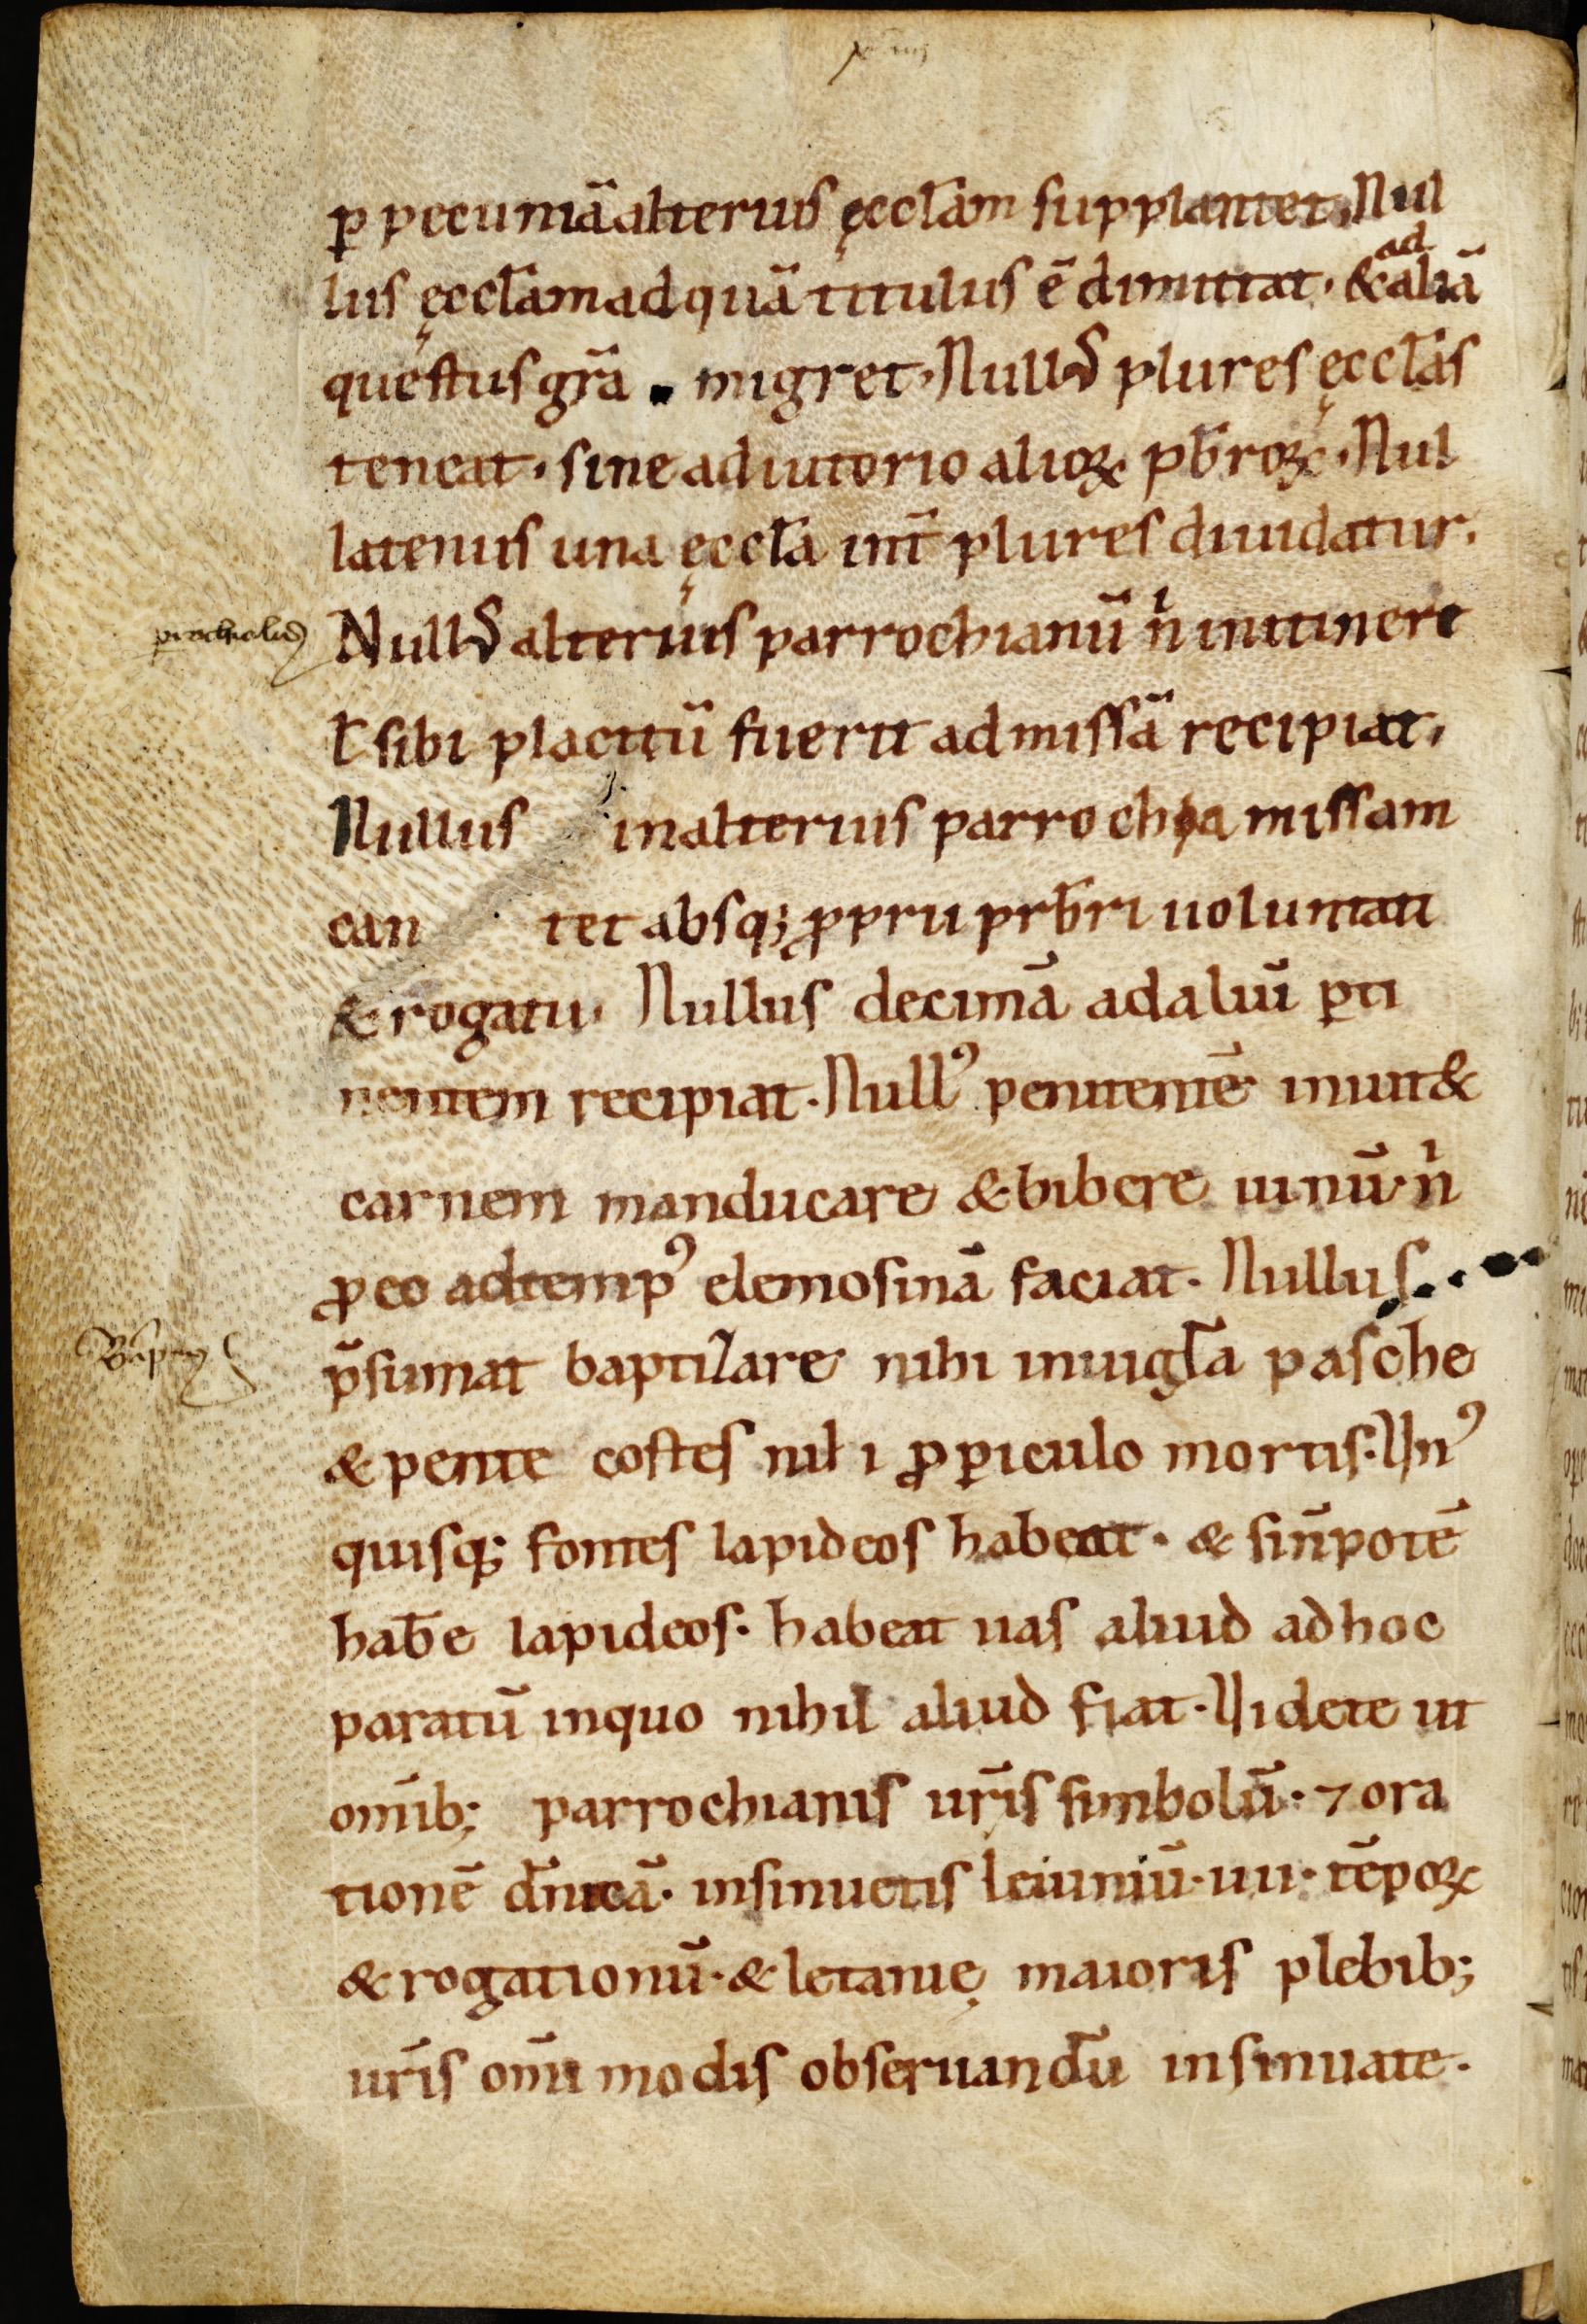 ꝑ pecuniā alterius ęccl̄am supplantet. Nul
lus ęccl̄am ad quā titulus ē dimittat. & ad aliā
questus gr̄a . migret. Null᷒ plures ęccl̄as
teneat. sine adiutorio alioꝝ pb̄roꝝ. Nul
latenus una ęccl̄a int̄ plures diuidatur.
parochialis
Null᷒ alterius parrochianū ń in itinere
ł sibi placitū fuerit ad missā recipiat.
Nullus in alterius parrochia missam
can tet absq; ꝓprii prb̄ri uoluntati
& rogatu. Nullus decimā ad aliū ꝑti
nentem recipiat. Nullꝰ penitentē inuit&
carnem manducare & bibere uinū ń
ꝓ eo ad tempꝰ elemosinā faciat. Nullus
p̄sumat baptizare nihi in uigl̄a pasche
& pente costes nihi ꝓ ꝑiculo mortis. Vnꝰ
quisq; fontes lapideos habeat. & si n̄ potē
hab̄e lapideos. habeat uas aliud ad hoc
paratū in quo nihil aliud fiat. Videte ut
om̄ib; parrochianis ur̄is simbolū. ⁊ ora
tionē dn̄icā. insinuetis Ieiuniū. iiii. tēpoꝝ
& rogationū. & letanię maioris plebib;
ur̄is om̄i modis obseruandū insinuate.